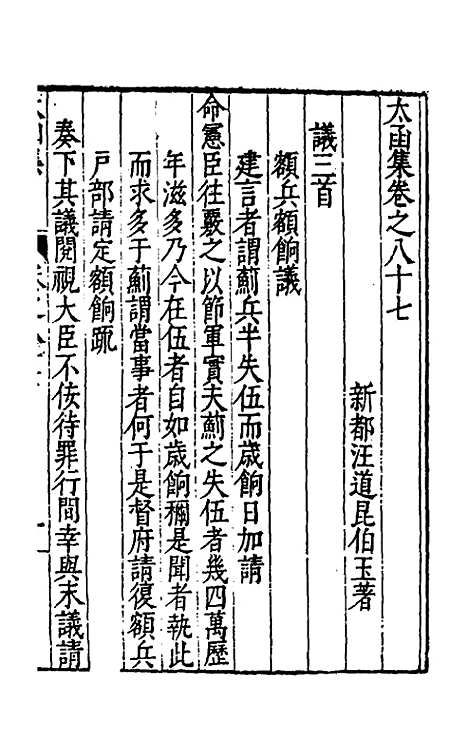 太函集卷之八十七
新都汪道昆伯玉著
議三首
額兵額餉議
建言者謂薊兵半失伍而歲餉日加請
命憲臣往覈之以節軍實夫薊之失伍者幾四萬歷
年滋多乃今在伍者自如歲餉稱是聞者執此
而求多于薊謂當事者何于是督府請復額兵
戶部請定額餉疏
奏下其議閱視大臣不佞待罪行間幸與末議請